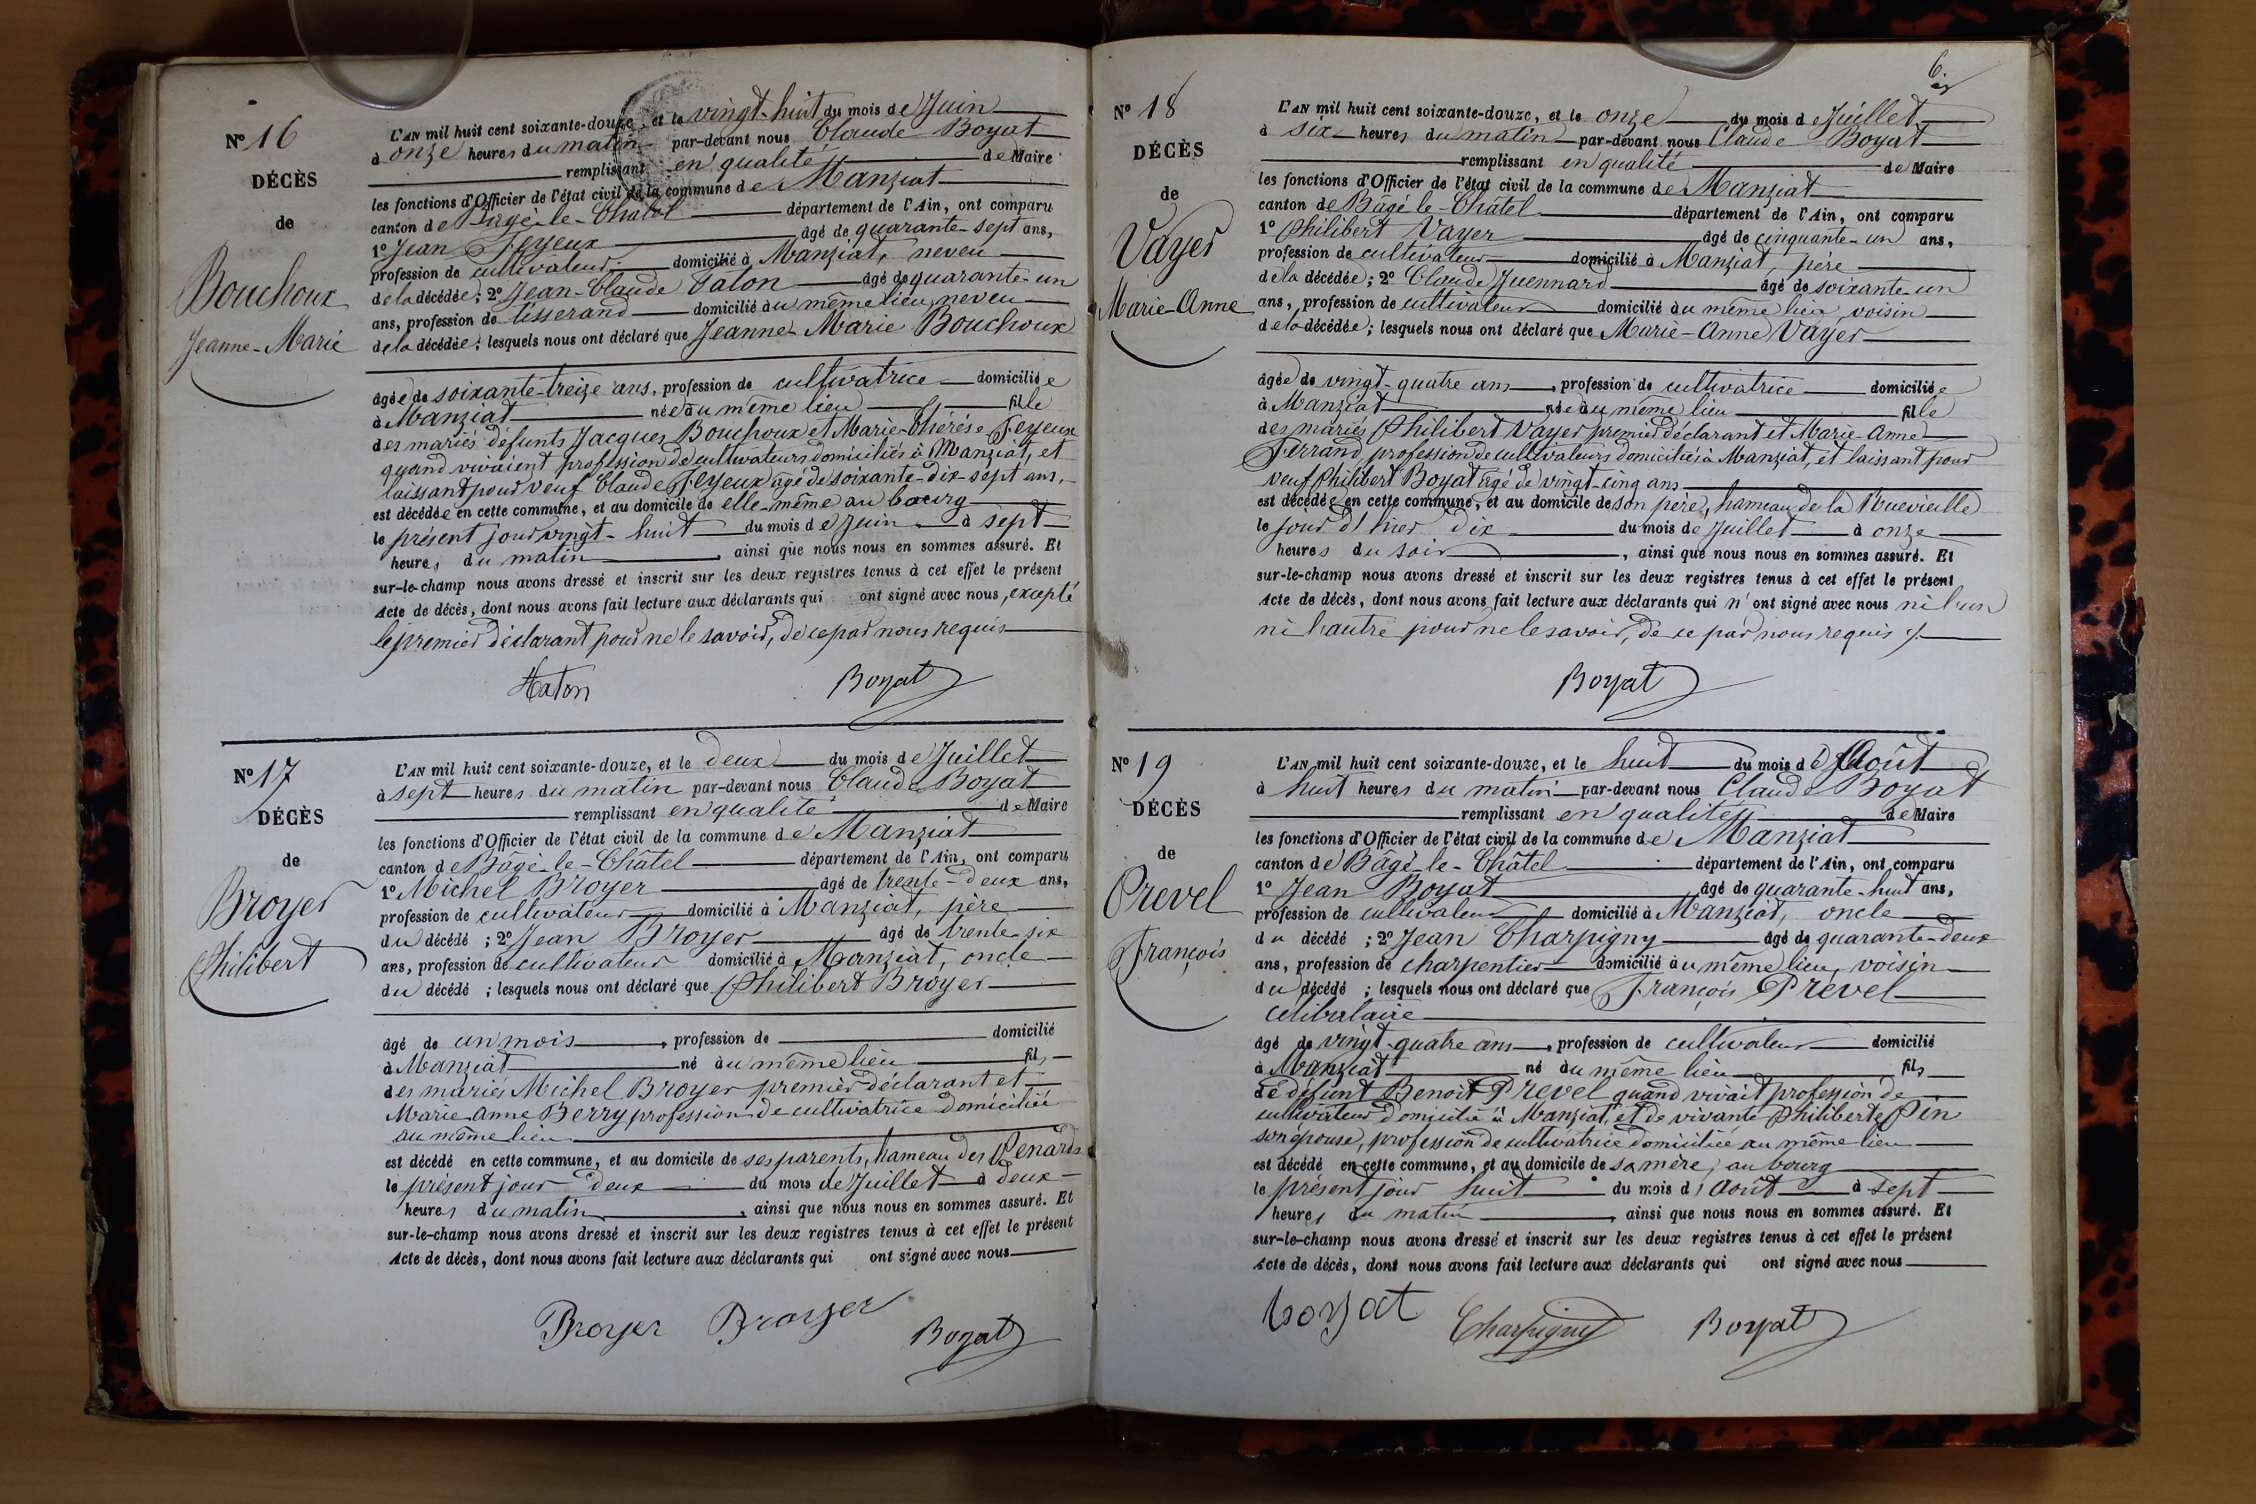 N° 16
DÉCÈS
de
Bouchoux
Jeanne-Marie
L'AN mil huit cent soixante-douze, et le vingt-huit du mois de Juin
à onze heures du matin par-devant nous Claude Boyat
remplissant en qualité de Maire
les fonctions d'Officier de l'état civil de la commune de Manziat
canton de Bâgé-le-Châtel département de l'Ain, ont comparu
1° Jean Feyeux âgé de quarante-sept ans,
profession de cultivateur domicilié à Manziat, neveu
de la décédée; 2° Jean-Claude Caton âgé de quarante-un
ans, profession de tisserand domicilié au même lieu, neveu
de la décédée; lesquels nous ont déclaré que Jeanne-Marie Bouchoux
âgée de soixante-treize ans, profession de cultivatrice domiciliée
à Manziat née au même lieu fille
des mariés défunts Jacques Bouchoux et Marie-Thérèse Feyeux
quand vivaient profession de cultivateurs domiciliés à Manziat, et
laissant pour veuf Claude Feyeux âgé de soixante-dix-sept ans,
est décédée en cette commune, et au domicile de elle-même au bourg
le présent jour vingt-huit du mois de Juin à sept
heures du matin, ainsi que nous nous en sommes assuré. Et
sur-le-champ nous avons dressé et inscrit sur les deux registres tenus à cet effet le présent
Acte de décès, dont nous avons fait lecture aux déclarants qui ont signé avec nous, excepté
le premier déclarant pour ne le savoir, de ce par nous requis
Boyat
N° 17
DÉCÈS
de
Broyer
Philibert
L'AN mil huit cent soixante-douze, et le deux du mois de Juillet
à sept heures du matin par-devant nous Claude Boyat
remplissant en qualité de Maire
les fonctions d'Officier de l'état civil de la commune de Manziat
canton de Bâgé-le-Châtel département de l'Ain, ont comparu
1° Michel Broyer âgé de trente-deux ans,
profession de cultivateur domicilié à Manziat, père
du décédé; 2° Jean Broyer âgé de trente-six
ans, profession de cultivateur domicilié à Manziat, oncle
du décédé; lesquels nous ont déclaré que Philibert Broyer
âgé de un mois, profession de domicilié
à Manziat né au même lieu fils
des mariés Michel Broyer premier déclarant et
Marie-Anne Berry profession de cultivatrice domiciliée
au même lieu
est décédé en cette commune, et au domicile de ses parents, hameau des Penards
le présent jour deux du mois de Juillet à deux
heures du matin, ainsi que nous nous en sommes assuré. Et
sur-le-champ nous avons dressé et inscrit sur les deux registres tenus à cet effet le présent
Acte de décès, dont nous avons fait lecture aux déclarants qui ont signé avec nous
Broyer Broyer Boyat
6.
N° 18
DÉCÈS
de
Vayer
Marie-Anne
L'AN mil huit cent soixante-douze, et le onze du mois de Juillet
à six heures du matin par-devant nous Claude Boyat
remplissant en qualité de Maire
les fonctions d'Officier de l'état civil de la commune de Manziat
canton de Bâgé-le-Châtel département de l'Ain, ont comparu
1° Philibert Vayer âgé de cinquante-un ans,
profession de cultivateur domicilié à Manziat, père
de la décédée; 2° Claude Juennard âgé de soixante-un
ans, profession de cultivateur domicilié au même lieu, voisin
de la décédée; lesquels nous ont déclaré que Marie-Anne Vayer
âgée de vingt-quatre ans, profession de cultivatrice domiciliée
à Manziat née au même lieu fille
des mariés Philibert Vayer premier déclarant et Marie-Anne
Ferrand, profession de cultivateurs domiciliés à Manziat, et laissant pour
veuf Philibert Boyat âgé de vingt-cinq ans
est décédée en cette commune, et au domicile de son père, hameau de la Ruevieille
le jour d'hier dix du mois de Juillet à onze
heures du soir, ainsi que nous nous en sommes assuré. Et
sur-le-champ nous avons dressé et inscrit sur les deux registres tenus à cet effet le présent
Acte de décès, dont nous avons fait lecture aux déclarants qui n'ont signé avec nous ni l'un
ni l'autre pour ne le savoir, de ce par nous requis
Boyat
N° 19
DÉCÈS
de
Prevel
François
L'AN mil huit cent soixante-douze, et le huit du mois d'Août
à huit heures du matin par-devant nous Claude Boyat
remplissant en qualité de Maire
les fonctions d'Officier de l'état civil de la commune de Manziat
canton de Bâgé-le-Châtel département de l'Ain, ont comparu
1° Jean Boyat âgé de quarante-huit ans,
profession de cultivateur domicilié à Manziat, oncle
du décédé; 2° Jean Charpigny âgé de quarante-deux
ans, profession de charpentier domicilié au même lieu, voisin
du décédé; lesquels nous ont déclaré que François Prevel
célibataire
âgé de vingt-quatre ans, profession de cultivateur domicilié
à Manziat né au même lieu fils
de défunt Benoit Prevel quand vivait profession de
cultivateur domicilié à Manziat, et de vivante Philiberte Pin
son épouse, profession de cultivatrice domiciliée au même lieu
est décédé en cette commune, et au domicile de sa mère, au bourg
le présent jour huit du mois d'Août à sept
heures du matin, ainsi que nous nous en sommes assuré. Et
sur-le-champ nous avons dressé et inscrit sur les deux registres tenus à cet effet le présent
Acte de décès, dont nous avons fait lecture aux déclarants qui ont signé avec nous
Boyat Charpigny Boyat